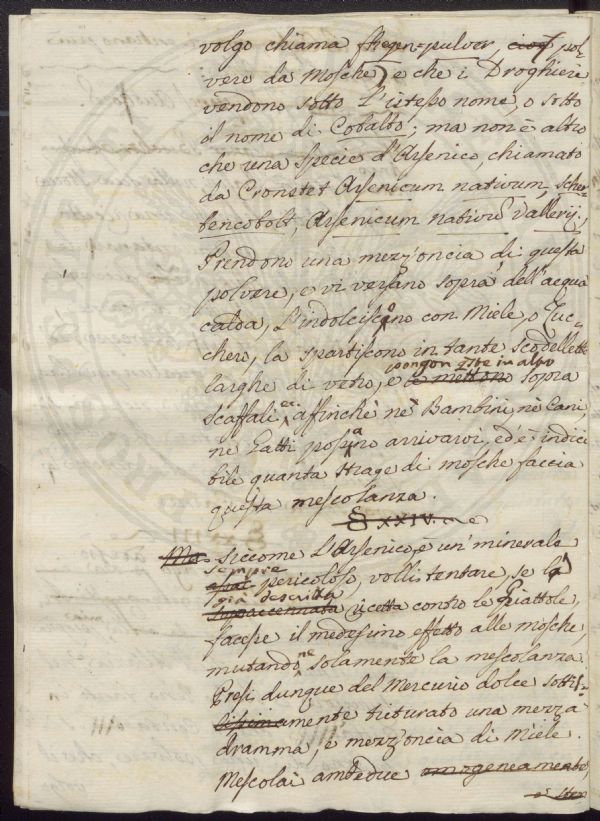 volgo chiama fhegen=pulver, cioè pol-
vere da Mosche) e che i Droghieri
vendono sotto l'istesso nome, o sotto
il nome di Cobalto; ma non è altro
che una specie d'Arsenico, chiamato
da Cronstet Arsenicum nativum, scher-
bencobolt, Arsenicum nativũ Vallerij.
Prendono una mezz'oncia di questa
polvere, e vi versano sopra dell'acqua
calda, l'indolciscono con Miele, o Zuc-
chero, la spartiscono in tante scodellette
larghe di vetro, e le mettono pongon queste in alto sopra
scaffali ec. affinchè nè Bambini, nè Cani,
nè Gatti possano arrivarvi, ed è indici
bile quanta strage di mosche faccia
questa mescolanza.
§ XXIV.
Ma siccome l'Arsenico, è un minerale
assai sempre pericoloso, volli tentare, se la
sopraccennata già descritta ricetta contro le Piattole,
facesse il medesimo effetto alle mosche,
mutandone solamente la mescolanza.
Presi dunque del Mercurio dolce sottil-
lissimamente triturato una mezza
dramma, e mezz'oncia di Miele.
Mescolai ambedue omogeneamente,